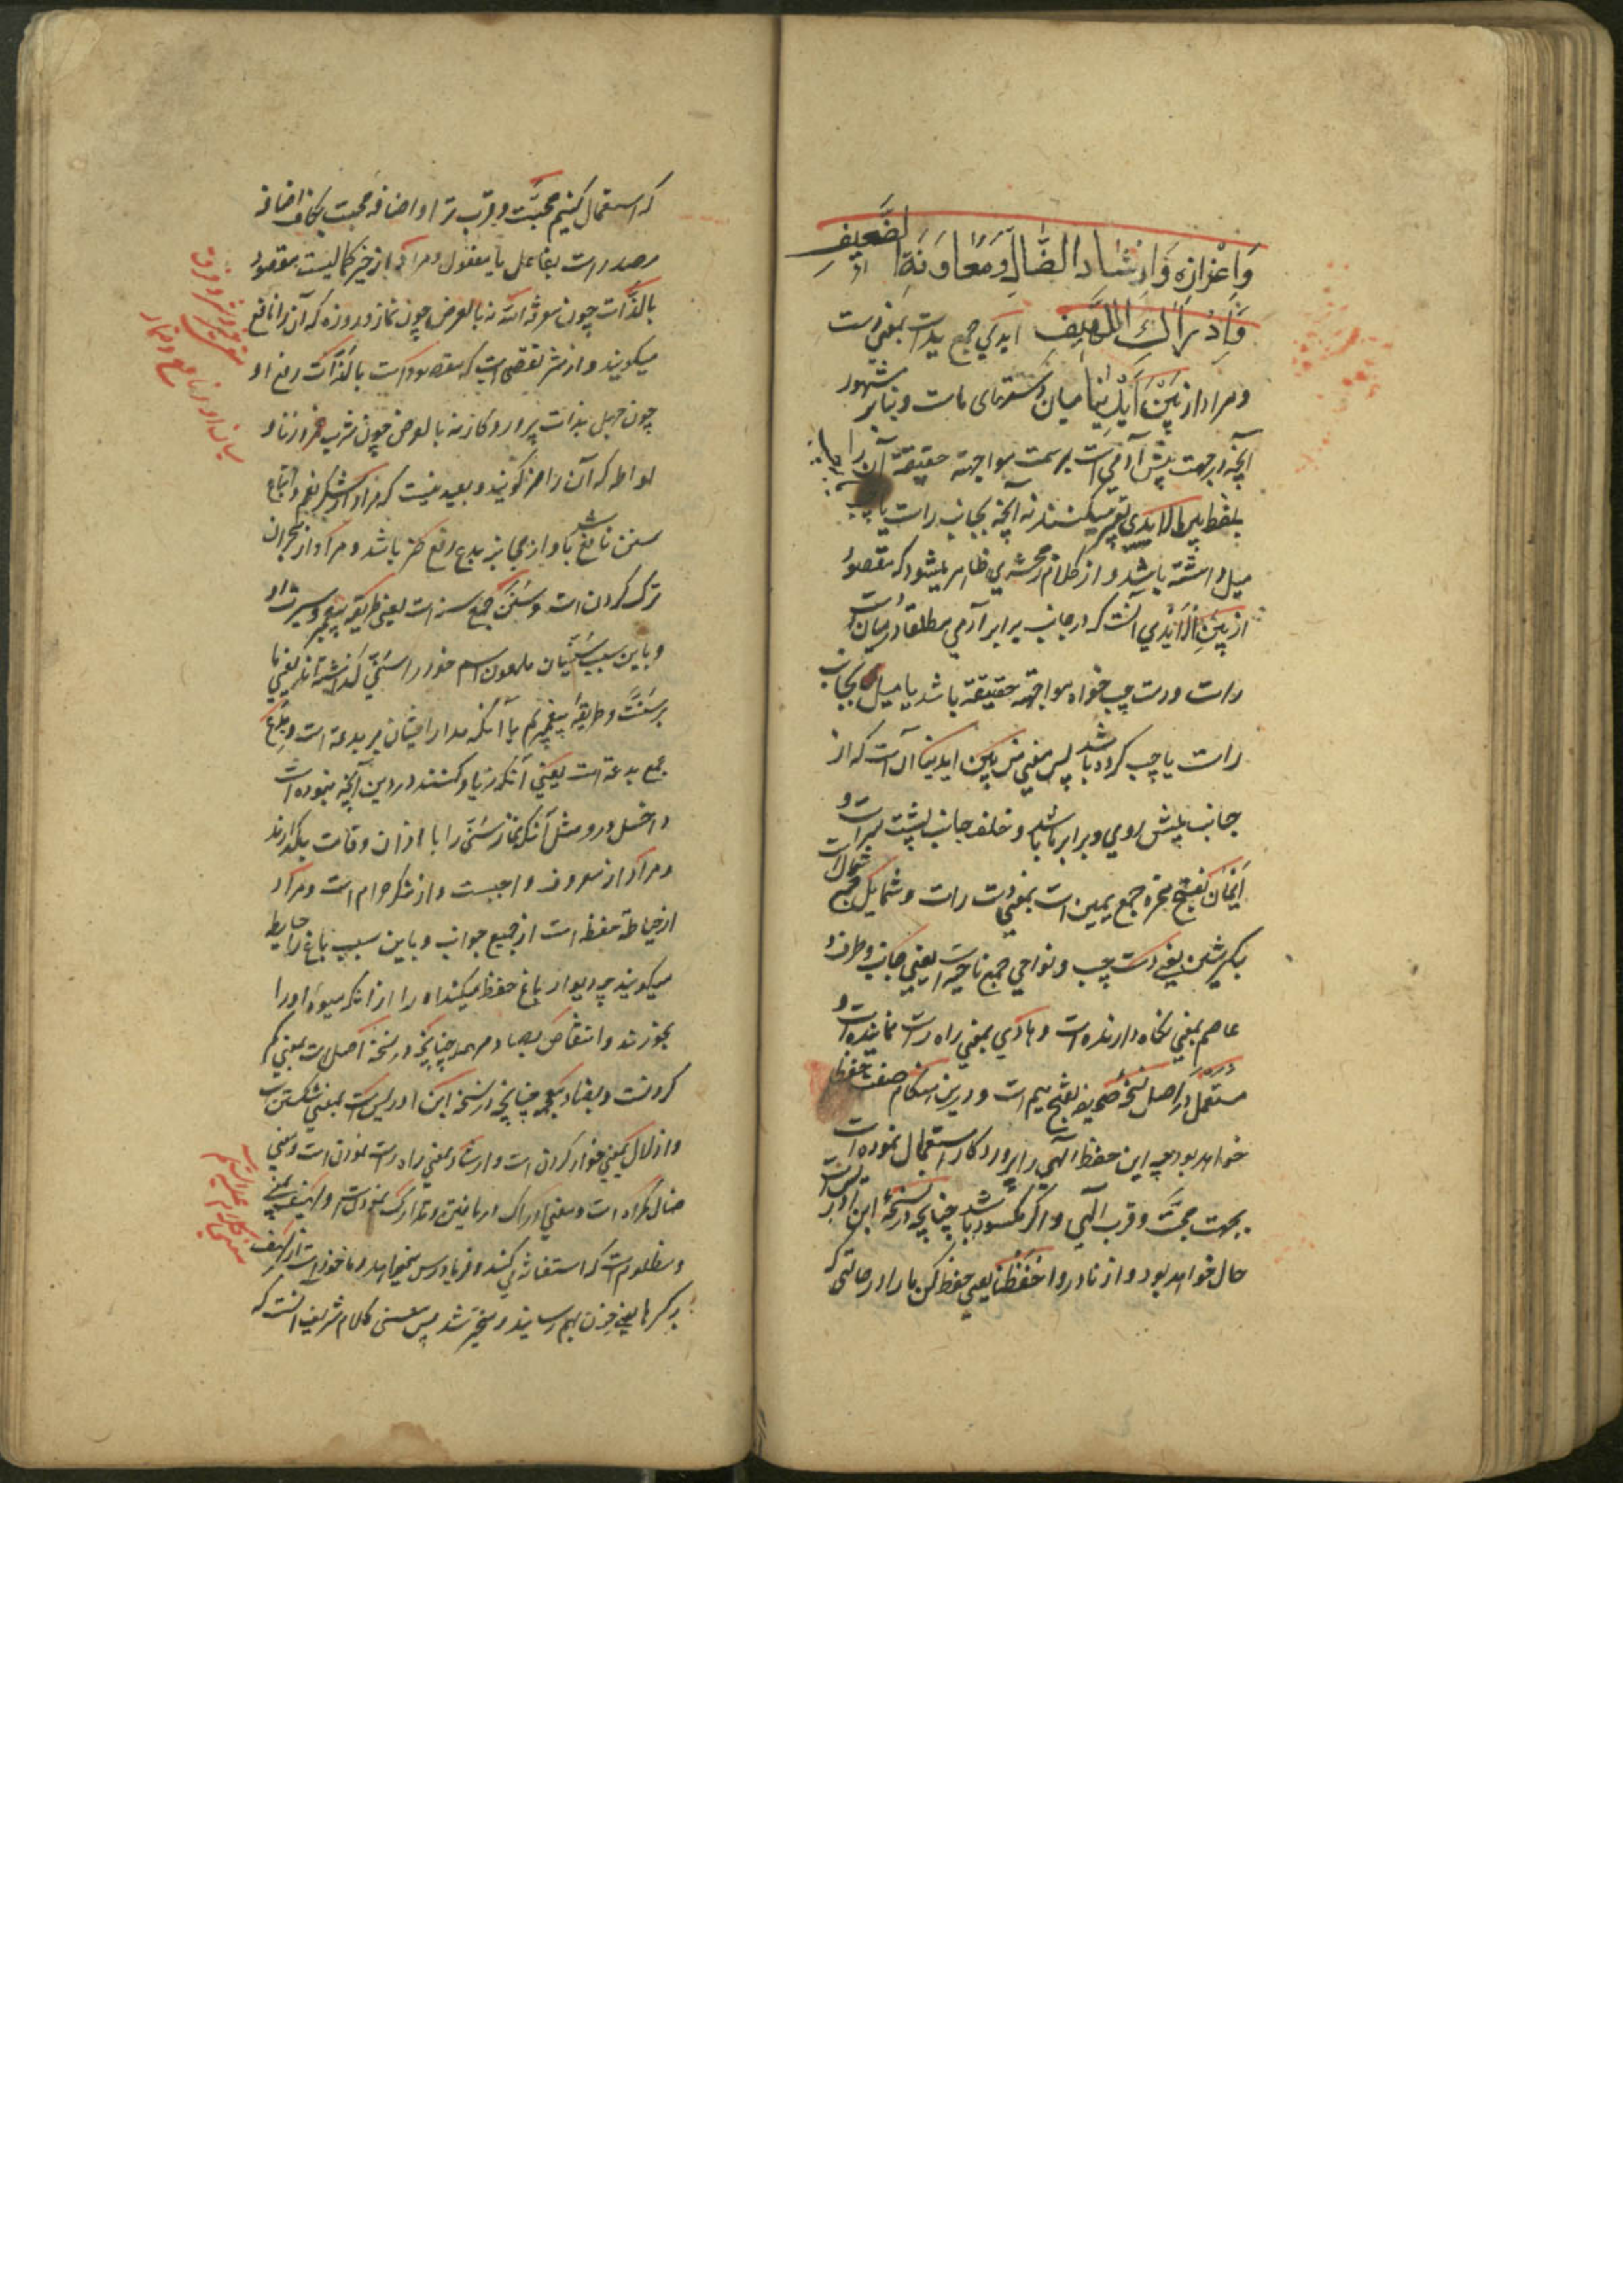 وَاِعْزازِهِ وَاِرْشادِ الضّالِّ وَمُعاوَنَةِ الضَّعيفِ
وَاِدْراكِ اللَّهيفِ ایدي جمع ید است بمعنی دست
ومراد از بَيْنَ اَيْدينا میان دستهای ماست وبنابر مشهور
آنچه در جهت پیش آدمی است بر سمت مواجهه حقیقة آن را
بلفظ بین الایدی تعبیر میکنند نه آنچه بجانب راست یا چپ
میل داشته باشد و از کلام زمخشري ظاهر میشود که مقصود
از بین الایدي آنست که در جانب برابر آدمي مطلقا در میان
راست ودست چپ خواه مواجهه حقیقة باشد یا میل بجانب
راست یا چپ کرده باشد پس معنی من بین ایدینا آن است که از
جانب پیش روي وبرابر ما باشد وخلف جانب پشت سر است و
اَیْمان بفتح همزه جمع یمین است بمعنی دست راست وشمایل جمع شمال است
بکسر شین یعنی دست چپ ونواحي جمع ناحیه است یعنی جانب وطرف و
عاصم بمعنی نگاه دارنده است وهادي بمعنی راه راست نماینده است و
مستعمل در اصل نسخه صحیفه بفتح میم است ودرین هنگام صفت حفظا
خواهد بود چه این حفظ الهي را پروردکار استعمال نموده است
بجهت محبّت وقرب الهي واگر مکسور باشد چنانچه در نسخهٔ ابن ادریس است
حال خواهد بود از نا در واحفظنا یعنی حفظ کن ما را در حالتی که
که استعمال کنیم محبّت وقرب ترا واضافه محبت بکاف اضافه
مصدر است بفاعل یا مفعول ومراد از خیر کمالیست مقصود
بالذّات چون معرفة الله نه بالعرض چون نماز وروزه که آن را نافع
میکویند واز شر نقصی است که مقصود است بالذّات رفع او
چون جهل بذات پروردکار نه بالعرض چون شرب خمر وزنا و
لواطه که آن را ضر کویند وبعید نیست که مراد از شکر نعم واتباع
سنن نافع باشد واز مجانبت بدع رفع ضر باشد ومراد از هجران
ترک کردن است وسُنَن جمع سنه است یعنی طریقه پیغمبر وسیرت او
وباین سبب سُنّیان ملعون اسم خود را سُنّي کذاشته اند یعنی ما
بر سُنّت وطریقهٔ پیغمبریم با آنکه مدار ایشان بر بدعة است وبِدَع
جمع بدعة است یعني آنکه زیاد کنند در دین آنچه نبوده است
داخل درو مثل آنکه نماز سُنّتی را با اذان وقامت بکذارند
ومراد از معروف واجبست واز منکر حرام است ومراد
از حیاطة حفظ است از جمیع جوانب وباین سبب باغ را حایط
میکویند چه دیوار باغ حفظ میکند او را از آنکه میوه او را
بخورند وانتقاص بصاد مهمله چنانچه در نسخهٔ اصل است بمعنی کم
کردنست وبضاد معجمه چنانچه در نسخهٔ ابن ادریس است بمعنی شکستن
واذلال بمعنی خوار کردن است وارشاد بمعنی راه راست نمودن است ومعنی
ضال کمراه است ومعنی ادراک دریافتن وتدارک نمودنست ولهیف بمعنی
ومظلوم است که استغاثه می کند وفریاد رس میخواهد وماخوذ است از لهف
بر کسرها یعنی حزن بهم رسانید ومتحیر شد پس معنی کلام شریف آنست که
معنی خیر وشر وفرق
میان او ونافع وضار
معنی کلام علیه السلام